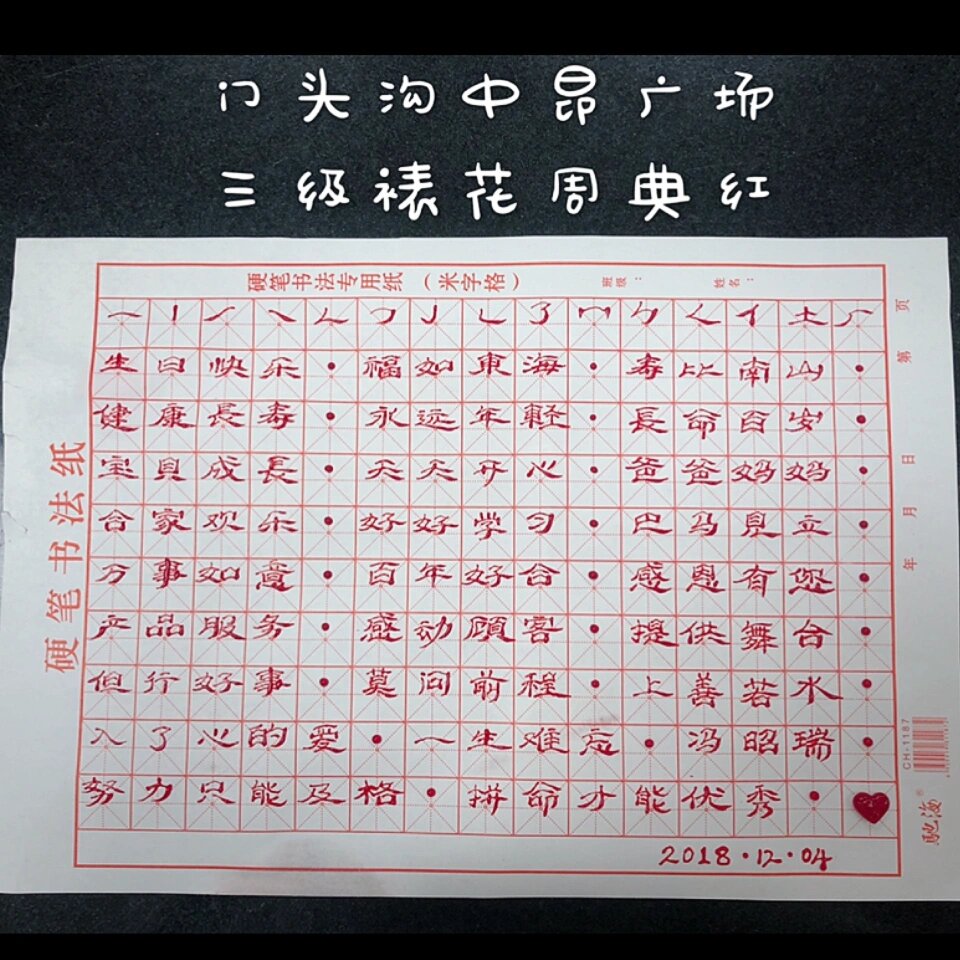 门头沟中昂广场
三级裱花周典红
硬笔书法专用纸（米字格）
班级：
姓名：
生日快乐•福如東海•寿比南山•
健康長寿•永远年軽•長命百岁•
宝貝成長•天天开心•爸爸妈妈•
合家欢乐•好好学习•巴马見立•
万事如意•百年好合•感恩有您•
产品服务•感动顧客•提供舞台•
但行好事•莫问前程•上善若水•
入了心的爱•一生难忘•冯昭瑞•
努力只能及格•拼命才能优秀•
2018.12.04
硬笔书法纸
第 页
年 月 日
CH-1187
驰海®